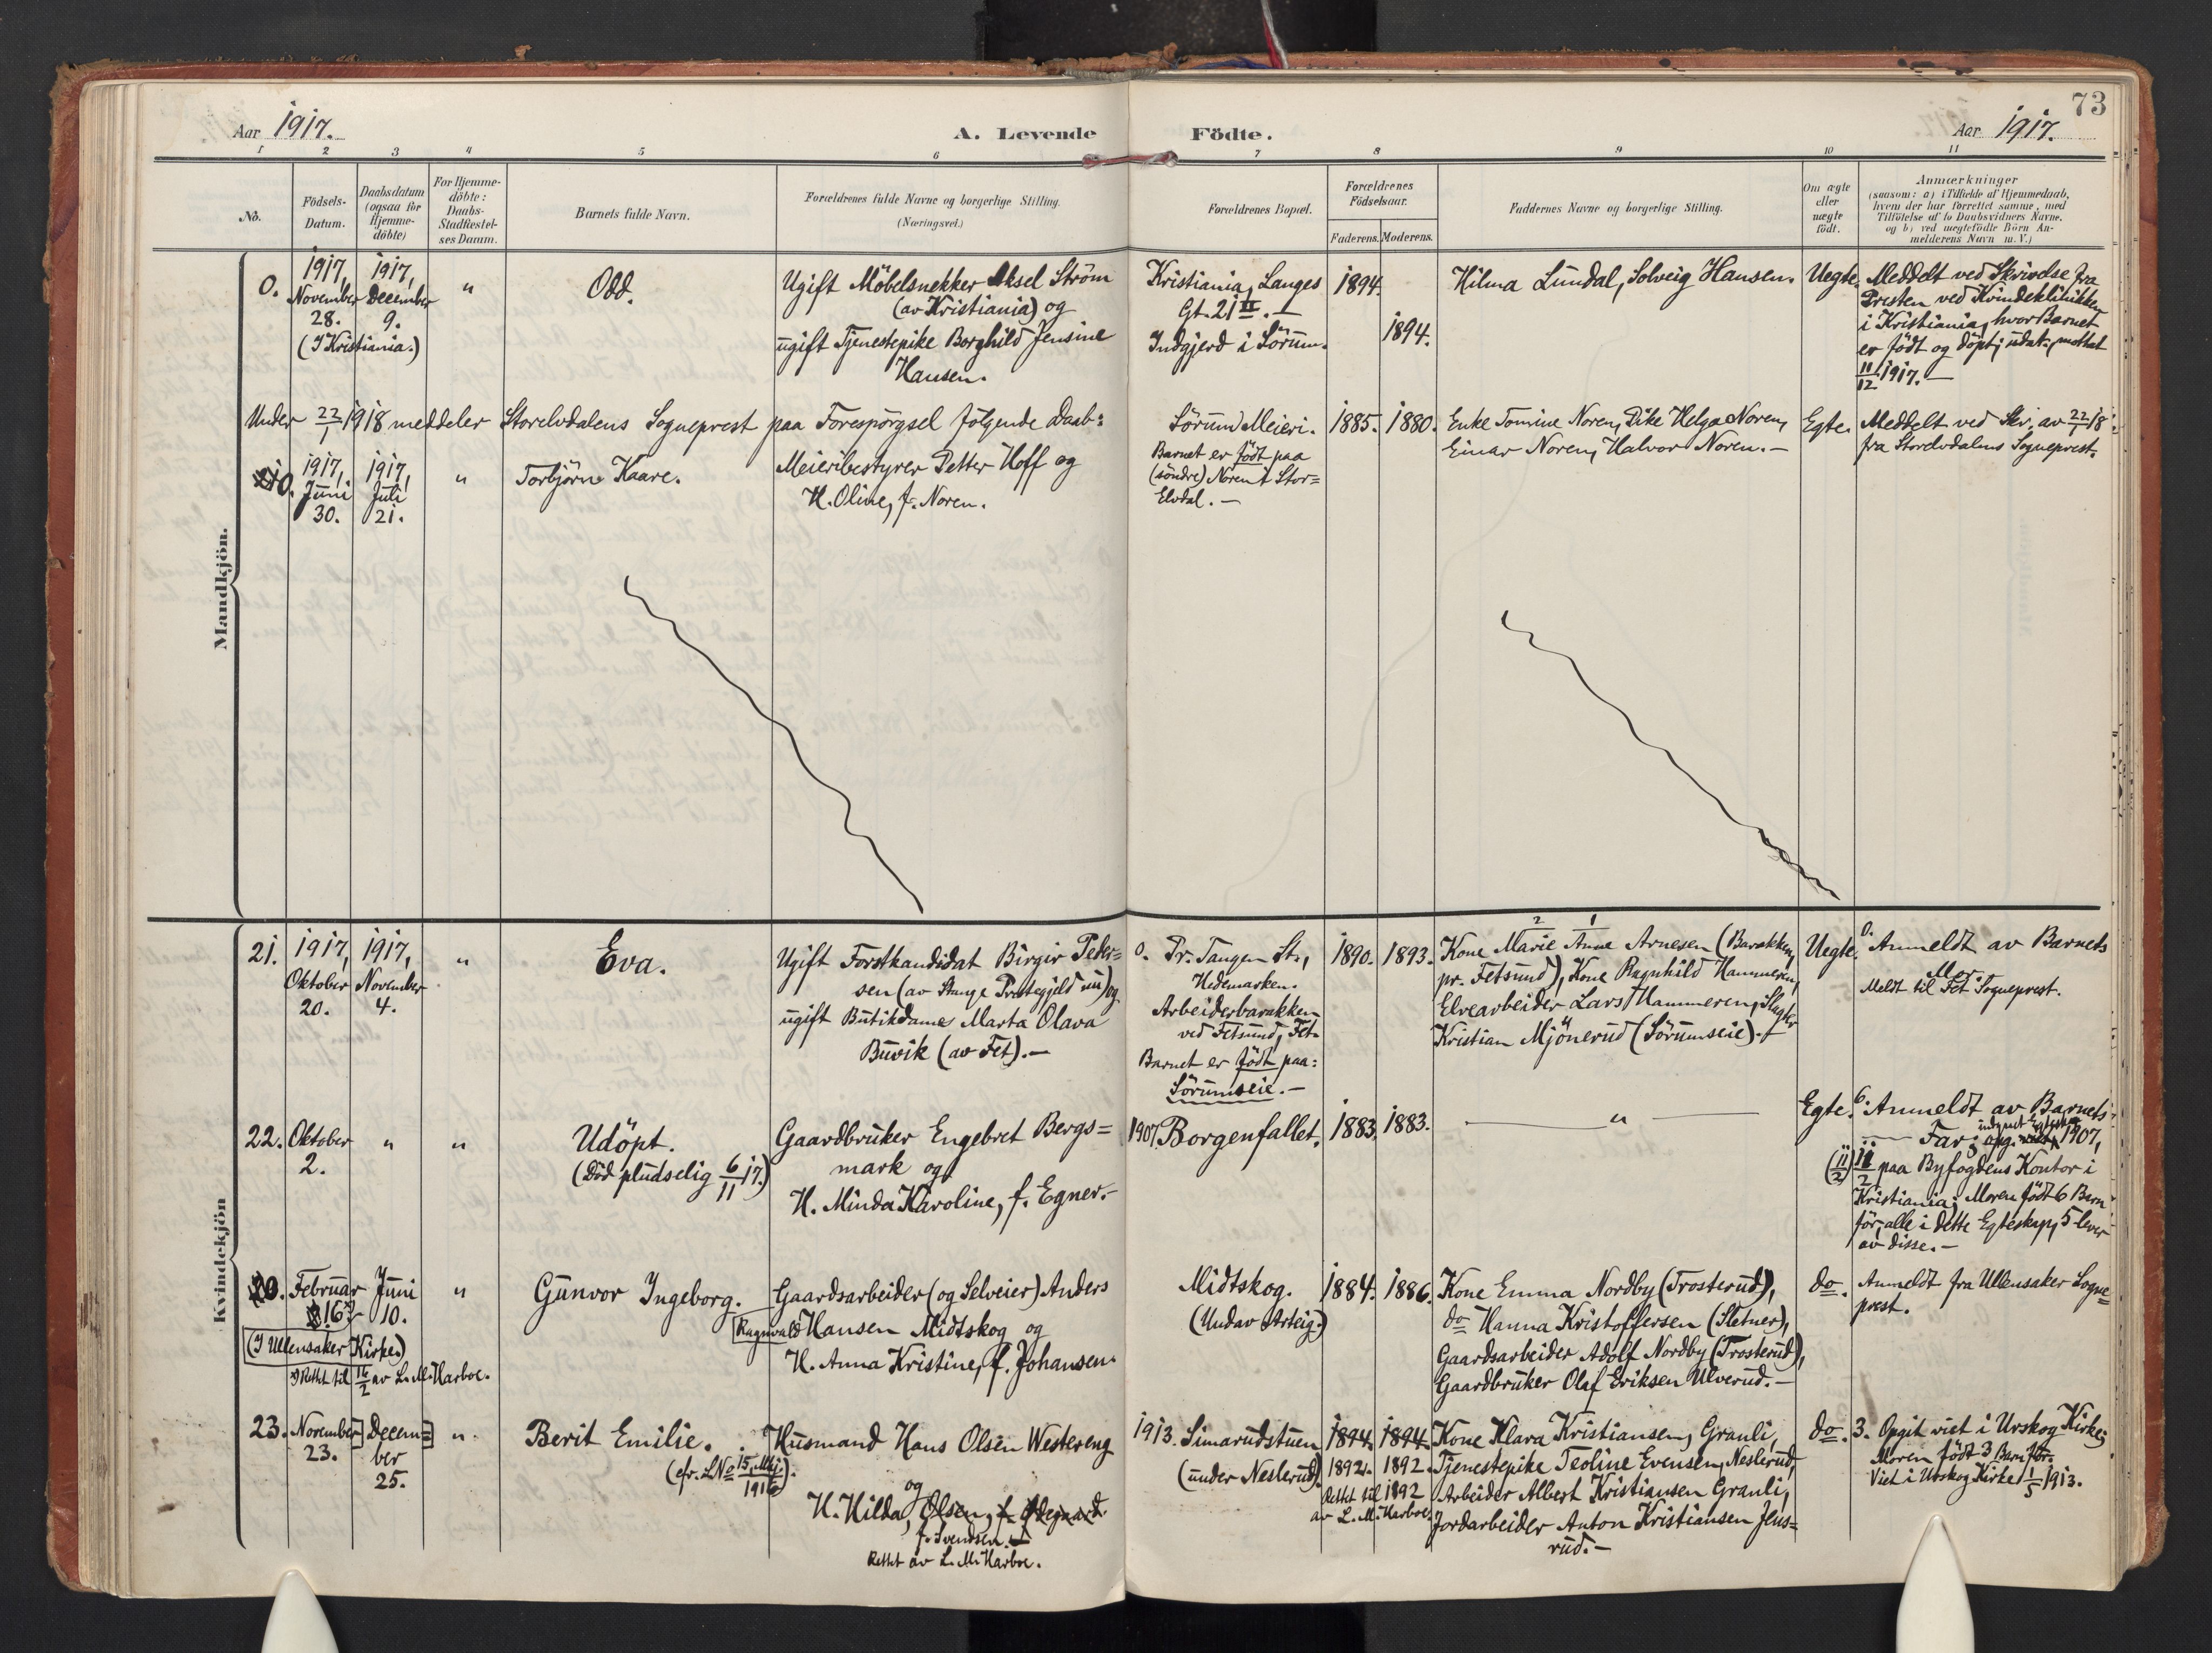 73
Aar 1917.
A. Levende Födte.
Aar 1917.
1 2 3 4 5 6 7 8 9 10 11
No.
Födsels-
Datum.
Daabsdatum
(ogsaa for
Hjemme-
döbte)
For Hjemme-
döbte:
Daabs-
Stadfæstel-
ses Datum.
Barnets fulde Navn.
Forældrenes fulde Navne og borgerlige Stilling.
(Næringsvei.)
Forældrenes Bopæl.
Forældrenes
Födselsaar.
Faderens. Moderens.
Faddernes Navne og borgerlige Stilling.
Om ægte
eller
uægte
födt.
Anmærkninger
(saasom: a) i Tilfælde af Hjemmedaab,
hvem der har forrettet samme, med
Tilföielse af to Daabsvidners Navne.
og b) ved uægtefödte Börn An-
melderens Navn m. V.)
Mandkjön.
0.
1917,
November
28.
1917,
December
9.
(I Kristiania.)
"
Odd.
Ugift Möbelsnekker Aksel Ström
(av Kristiania) og
ugift Tjenestepike Borghild Jensine
Hansen.
Kristiania, Langes
Gt. 21 II. —
Indgjerd i Sörum.
1894.
1894.
Hilma Lundal, Solveig Hansen.
Uegte.
Meddelt ved Skrivelse fra
Presten ved Kvindeklinikken
i Kristiania, hvor Barnet
er födt og döpt; udat., mottat
11/12 1917. —
Under 22/1 1918 meddeler Storelvdalens Sogneprest paa Forespörgsel fölgende Daab:
0.
1917,
Juni
30.
1917,
Juli
21.
"
Torbjörn Kaare.
Meieribestyrer Petter Hoff og
H. Oline, f. Noren.
Sörum Meieri.
Barnet er födt paa
(söndre) Noren i Stor=
Elvdal. —
1885. 1880.
Enke Tomine Noren, Pike Helga Noren,
Einar Noren, Halvor Noren. —
Egte.
Meddelt ved Skr. av 22/1 18
fra Storelvdalens Sogneprest.
Kvindekjön
21.
1917,
Oktober
20.
1917,
November
4.
"
Eva.
Ugift Forstkandidat Birgir Peder=
sen (av Stange Prestegjeld nu) og
ugift Butikdame Marta Olava
Buvik (av Fet). —
0. Pr. Tangen St.,
Hedemarken.
Arbeiderbarakken
ved Fetsund, Fet.
Barnet er födt paa:
Sörumseie. —
1890. 1893.
2 1
Kone Marie Anne Arnesen (Barakken,
pr. Fetsund), Kone Ragnhild Hammeren,
Elvearbeider Lars Hammeren, Slagter
Kristian Mjönerud (Sörumseie). —
Uegte.
0. Anmeldt av Barnets
Mor.
Meldt til Fet Sogneprest.
22.
Oktober
2.
"
"
Udöpt.
(Död pludselig 6/11 17.)
Gaardbruker Engebret Bergs=
mark og
H. Minda Karoline, f. Egner. —
1907. Borgenfallet.
1883. 1883.
— " —
Egte.
6. Anmeldt av Barnets
— Far; opg. indgaat Egteskap 1907,
(11/2) 11/2 paa Byfogdens Kontor i
Kristiania; Moren födt 6 Barn
för, alle i dette Egteskap, 5 lever
av disse. —
0.
Februar
16.
Juni
10.
(I Ullensaker Kirke.)
Rettet til 16/2 av L. M. Harboe.
"
Gunvor Ingeborg.
Gaardsarbeider (og Selveier) Anders
[Ragnvald] Hansen Midtskog og
H. Anna Kristine, f. Johansen.
Midtskog.
(Undav Arteig.)
1884. 1886.
Kone Emma Nordby (Trosterud),
do Hanna Kristoffersen (Sletner),
Gaardsarbeider Adolf Nordby (Trosterud),
Gaardbruker Olaf Eriksen Ulverud. —
do.
Anmeldt fra Ullensaker Sogne=
prest.
23.
November
23.
Decem=
ber
25.
"
Berit Emilie.
(cfr. L No 15, Mkj. 1916).
Husmand Hans Olsen Westereng
og
H. Hilda, Olsen, f. Ödegaard.
f. Svendsen. —
Rettet av L. M. Harboe.
1913. Simarudstuen
(under Neslerud)
1894. 1894.
1892. 1892.
Rettet til 1892
av L. M. Harboe.
Kone Klara Kristiansen, Granli,
Tjenestepike Teoline Evensen, Neslerud,
Arbeider Albert Kristiansen Granli,
Jordarbeider Anton Kristiansen Jens=
rud. —
do.
3. Opgit viet i Urskog Kirke;
Moren födt 3 Barn för.
Viet i Urskog Kirke 1/5 1913.